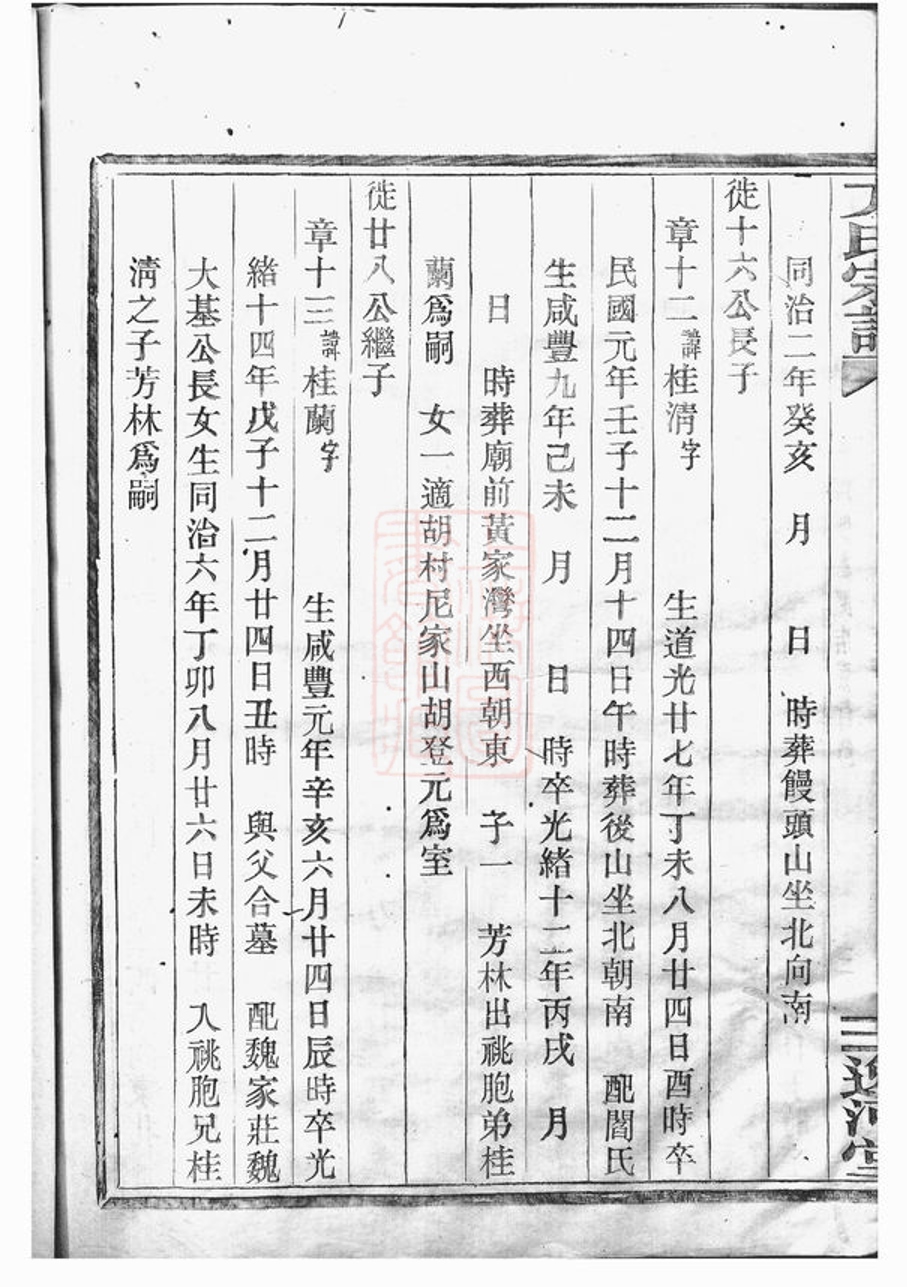 氏宗譜
三逸河堂
同治二年癸亥　月　日　時葬饅頭山坐北向南
徙十六公長子
章十二諱桂淸字　生道光廿七年丁未八月廿四日酉時卒
民國元年壬子十二月十四日午時葬後山坐北朝南　配閻氏
生咸豐九年己未　月　日　時卒光緒十二年丙戌　月
日　時葬廟前黃家灣坐西朝東　子一　芳林出祧胞弟桂
蘭爲嗣　女一適胡村尼家山胡登元爲室
徙廿八公繼子
章十三諱桂蘭字　生咸豐元年辛亥六月廿四日辰時卒光
緒十四年戊子十二月廿四日丑時　與父合墓　配魏家莊魏
大基公長女生同治六年丁卯八月廿六日未時　入祧胞兄桂
淸之子芳林爲嗣